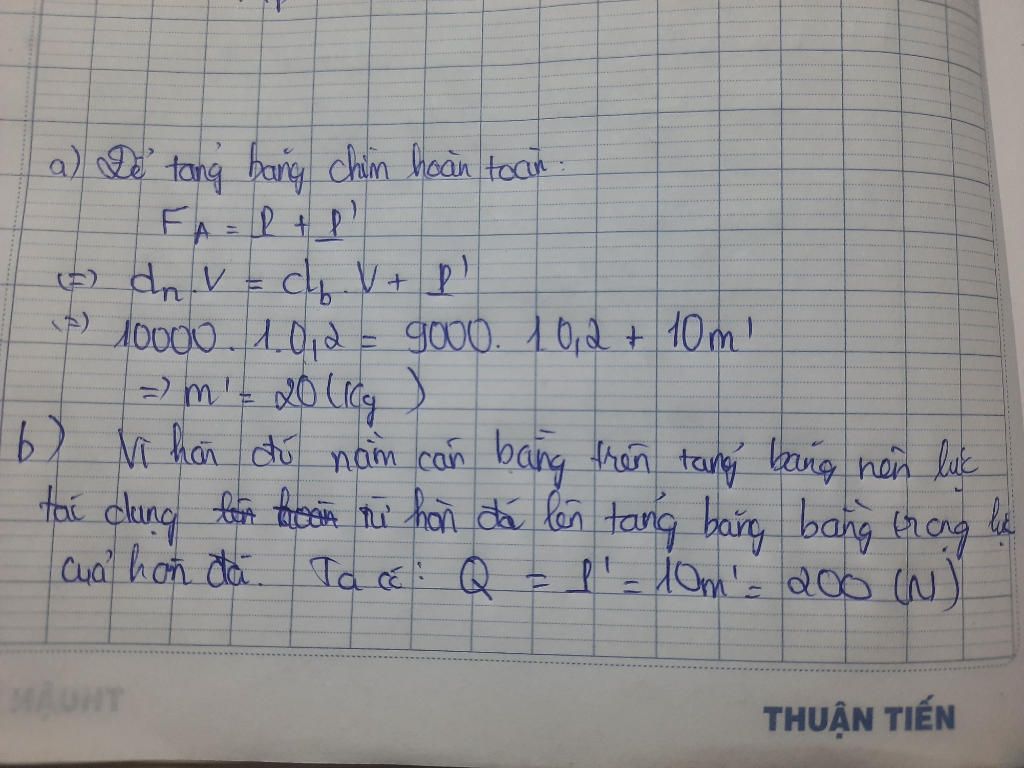 a) Để tảng băng chìm hoàn toàn:
F_A = P + P'
(=) d_n . V = d_b . V + P'
(=) 10000 . 1.0,2 = 9000 . 1 0,2 + 10m'
=> m' = 20 (Kg)
b) Vì hòn đá nằm cân bằng trên tảng băng nên lực
tác dụng từ hòn đá lên tảng băng bằng trọng lực
của hòn đá. Ta có: Q = P' = 10m' = 200 (N)
THUẬN TIẾN